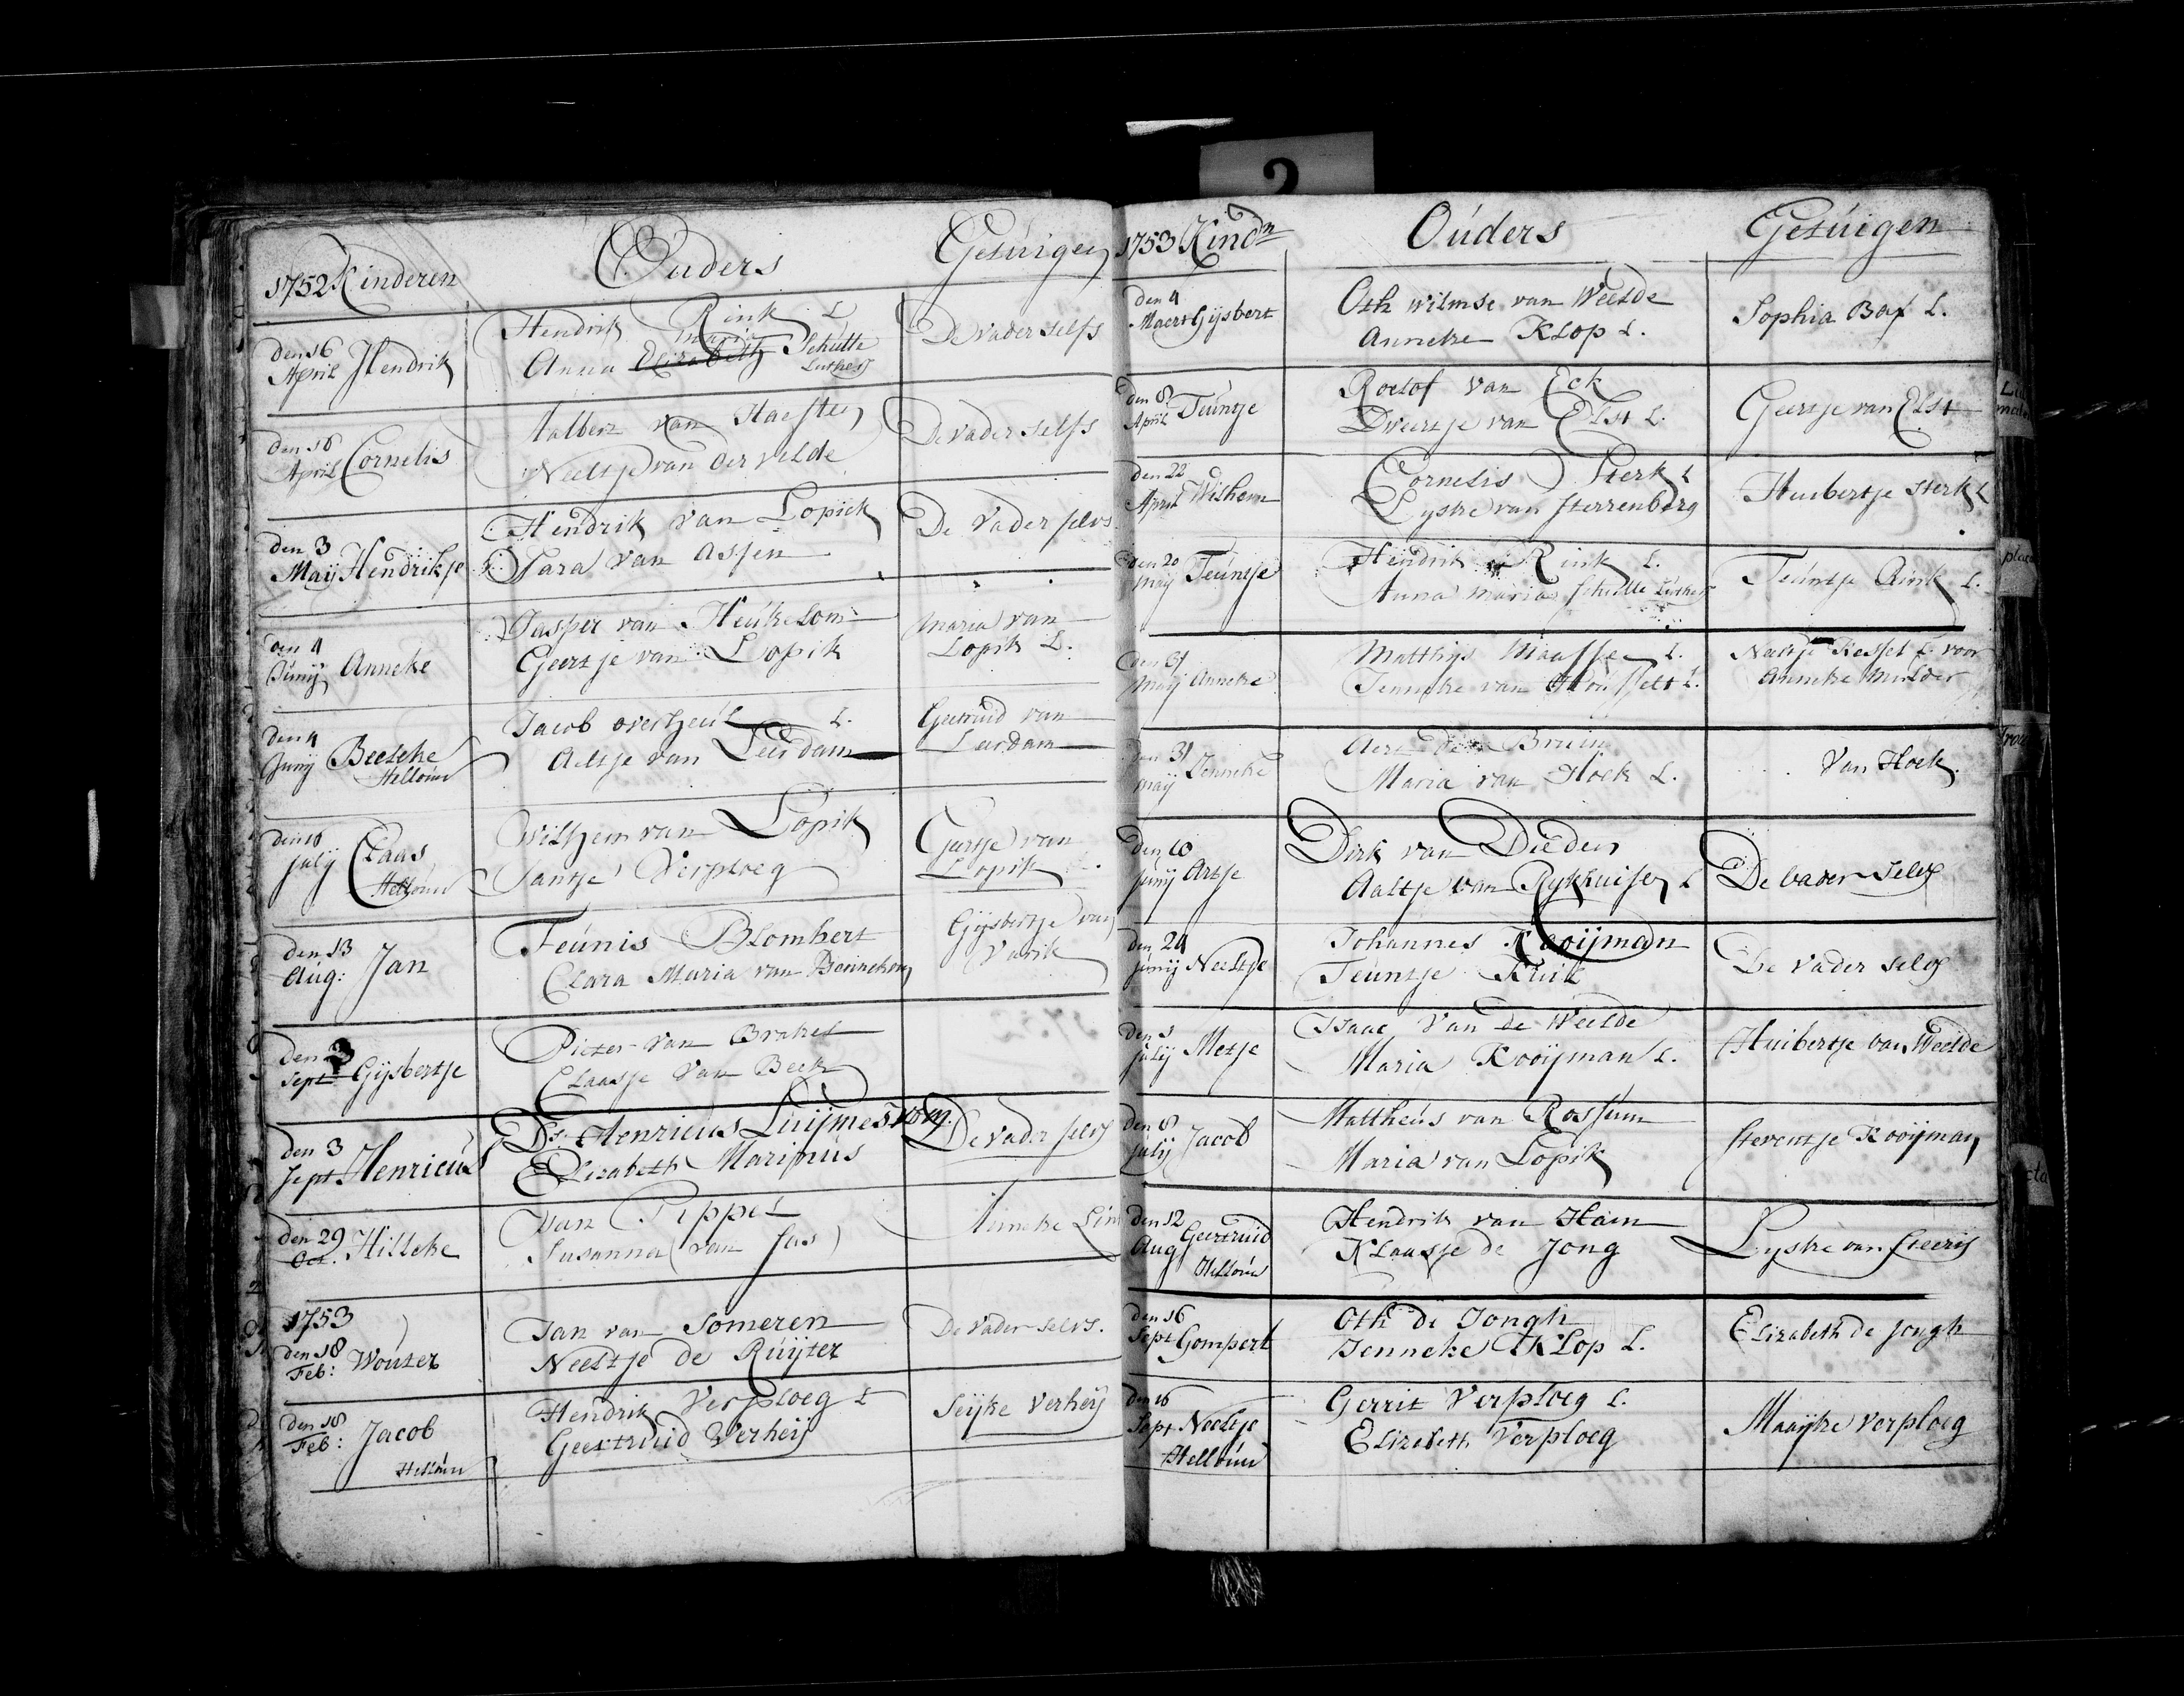 2
1752 Kinderen Ouders Getuigen
den 16 April Hendrik
Hendrik Rink L
Anna Elizabeth Maria Schutte Luthers
De Vader selfs
den 16 April Cornelis
Aalbert van Haeften
Neeltje van der velde
De Vader selfs
den 3 Maij Hendrikje
Hendrik van Lopick
Sara van Assen
De Vader selvs
den 4 Junij Anneke
Jasper van Heukelom
Geertje van Lopik
Maria van
Lopik L.
den 4 Junij Beetske
Hellouw
Jacob overheul L.
Aeltje van Leerdam
Geertruid van
Leerdam
den 16 Julij Claas
Hellouw
Wilhem van Lopik
Jantje Verploeg
Geertje van
Lopik
den 13 Aug: Jan
Teunis Blomhert
Clara Maria van Bennekom
Gijsbertje van
Varik
den 3 Sept Gijsbertje
Pieter van Brakel
Claasje van Beek
den 3 Sept Henricus
Ds. Henricus Luijmes
Elisabeth Marinus
De Vader selvs
den 29 Oct. Hilleke
Jan Pippel
Susanna van
1753
den 18 Feb: Wouter
Jan van Someren
Neeltje de Ruijter
De Vader selvs.
den 18 Feb: Jacob
Hellouw
Hendrik Verploeg L
Geertruid Verheij
Seijke Verheij
1753 Kindn Ouders Getuigen
den 4 Maert Gijsbert
Oth wilmse van Weelde
Anneke Klop L.
Sophia Bax L.
den 8 April Teuntje
Roelof van Eck
Dweertje van Elst L.
Geertje van Elst
den 22 April Wilhem
Cornelis Sterk L
Lijske van Sterrenberg
Huibertje Sterk L
den 20 Maij Teuntje
Hendrik Rink L.
Anna Maria Schutte Luthers
Teuntje Rink L.
den 31 Maij Anneke
Matthijs Maassen L.
Jenneke van Housselt L.
Neeltje Kessel L voor
Anneke Mulder
den 31 Maij Jenneke
Aert den Bruin
Maria van Hoek L.
Van Hoek.
den 10 Junij Artje
Dirk van Dieden
Aaltje van Rijkhuisen L
De Vader selvs
den 24 Junij Neeltje
Johannes Kooijman
Teuntje Kuik
De Vader selvs
den 1 Julij Metje
Isaac van de Weelde
Maria Kooijman L.
Huibertje van Weelde
den 8 Julij Jacob
Mattheus van Rossum
Maria van Lopik
Steventje Kooijman
den 12 Aug Geertruid
Hellouw
Hendrik van Ham
Klaasje de Jong
Lijske van Steeris
den 16 Sept Gompert
Oth de Jongh
Jenneke Klop L.
Elizabeth de Jongh
den 16 Sept Neeltje
Hellouw
Gerrit Verploeg L.
Elizabeth Verploeg
Maaijke Verploeg